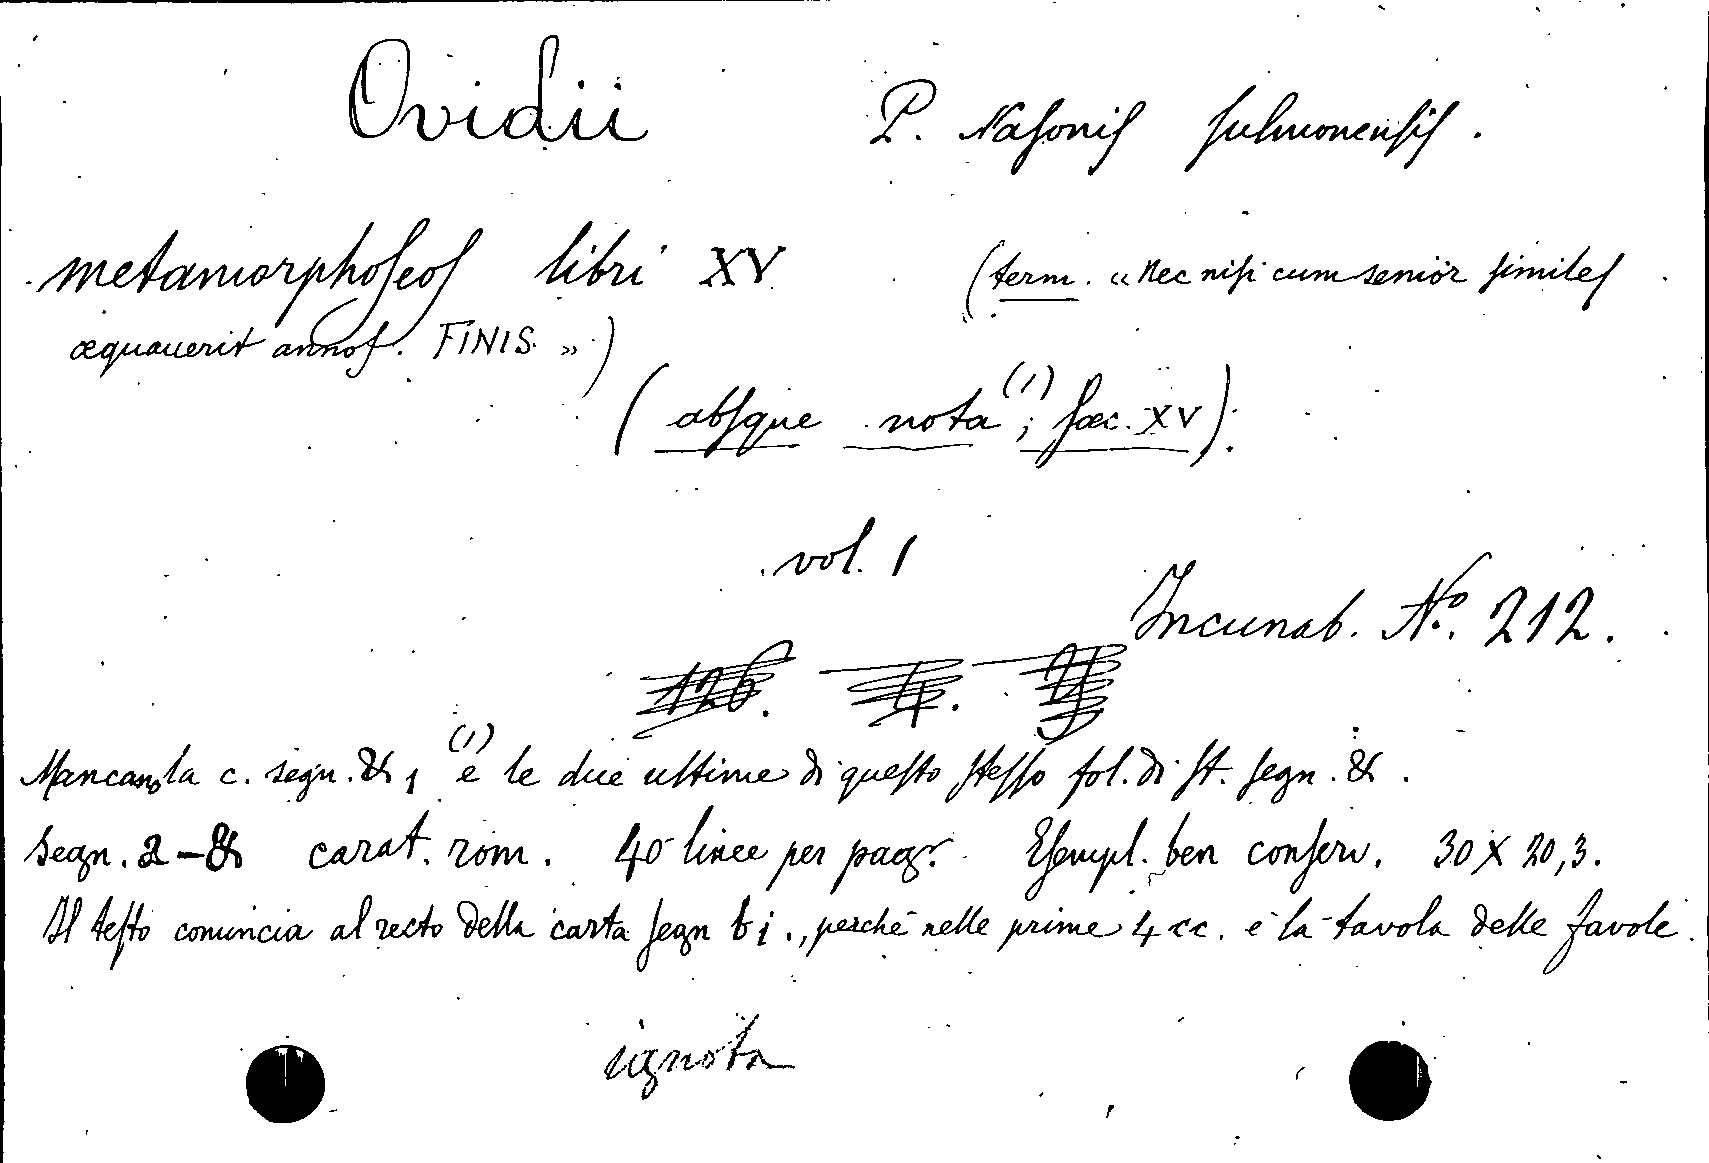 Ovidii P. Nasonis sulmonensis.
metamorphoseos libri XV (term. « Nec nisi cum senior similes
æquauerit annos. FINIS. » )
( absque nota (1) ; sæc. XV).
vol. 1
Incunab. Nº. 212.
126. 4.
Mancano la c. segn. & 1 (1) e le due ultime di questo stesso fol. di st. segn. & .
segn. a - & carat. rom. 40 linee per pag. Esempl. ben conserv. 30 X 20,3.
Il testo comincia al recto della carta segn b i ., perché nelle prime 4 cc. è la tavola delle favole.
ignota